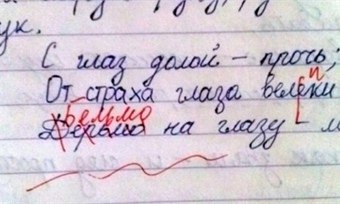 ук.
С глаз долой – прочь;
От страха глаза велеки
п
Бельмо
Дерьмо на глазу – м